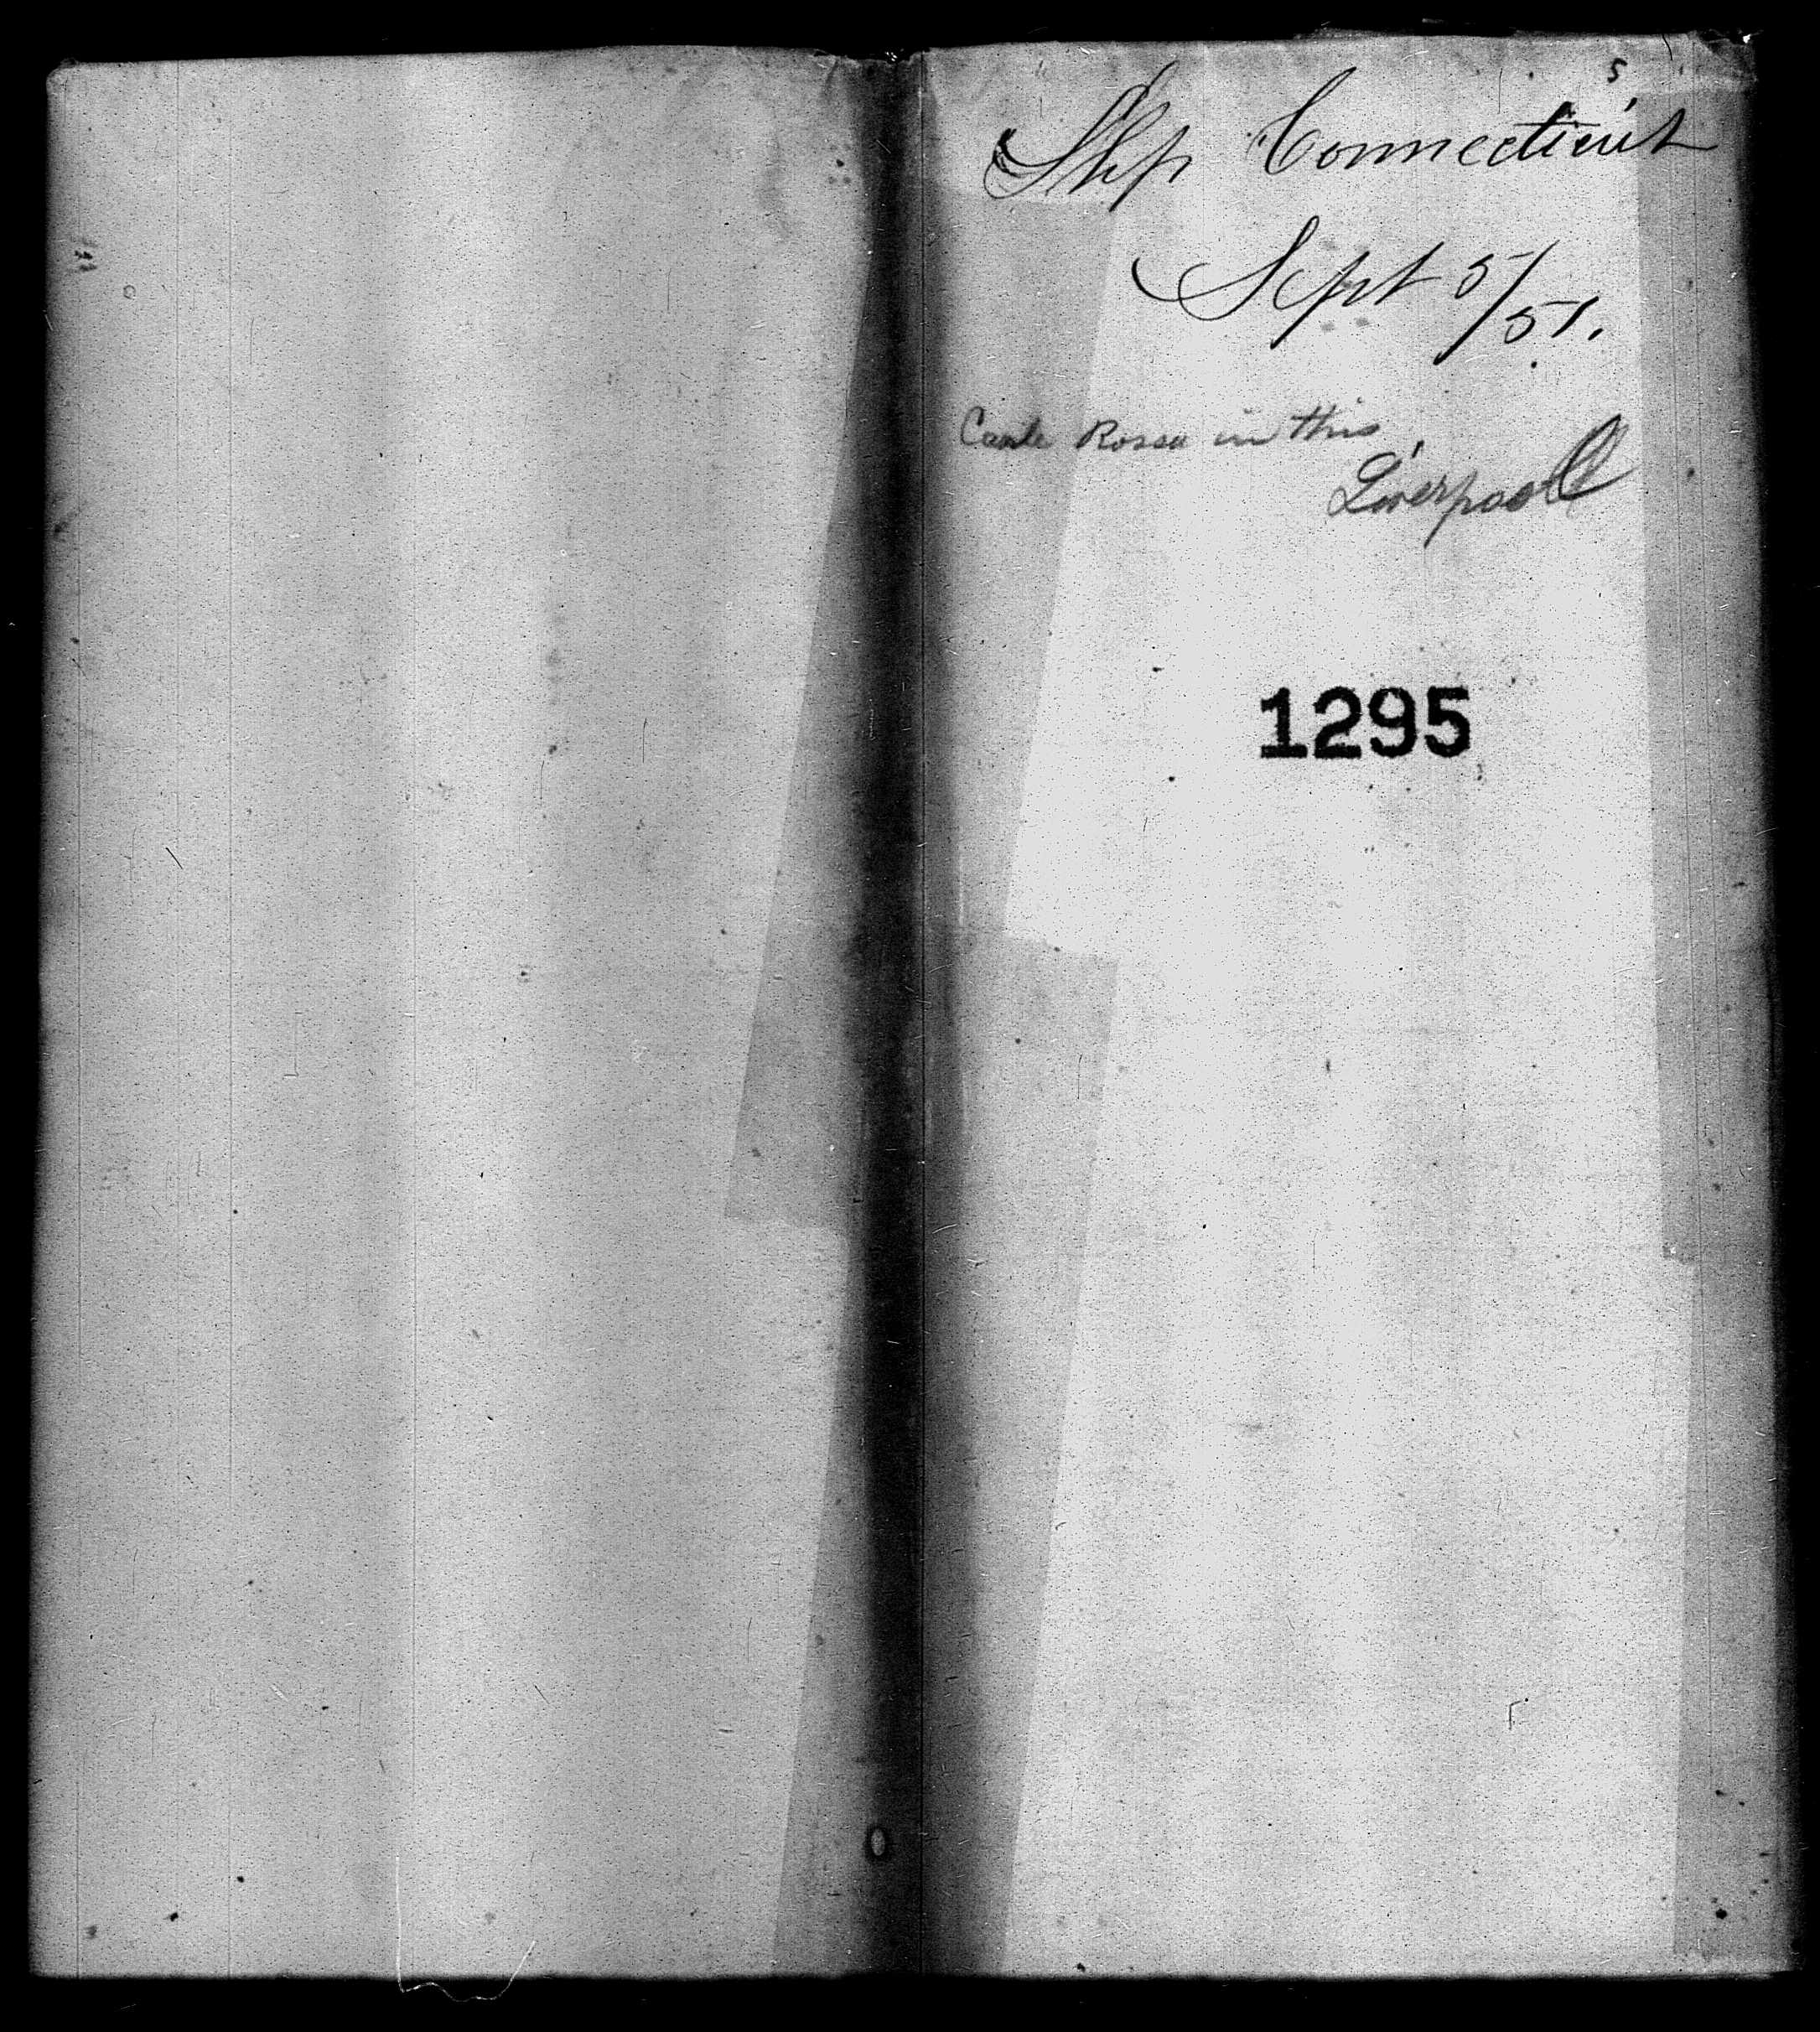 5
Ship Connecticut
Sept 5/51.
Rossa in this
Liverpool
1295